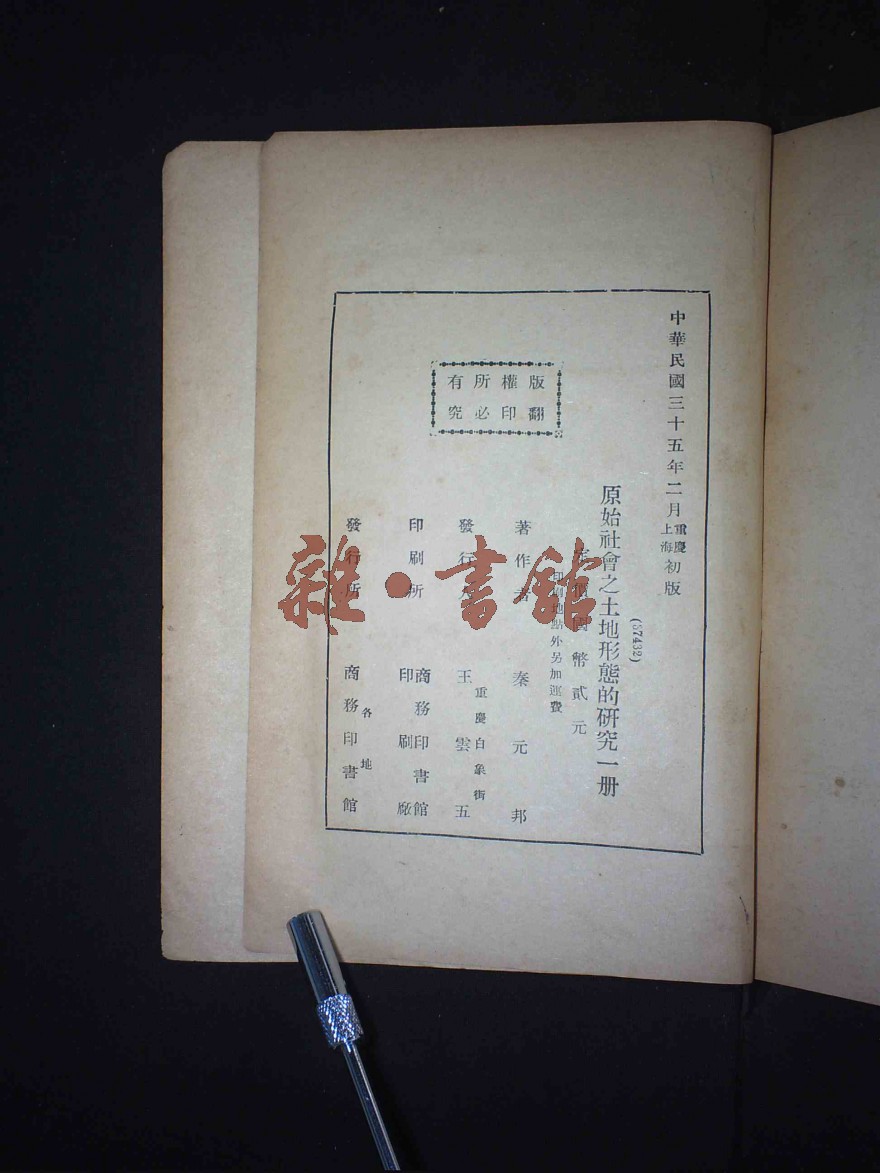 中華民國三十五年二月重慶上海初版
(57432)
原始社會之土地形態的研究一册
定價國幣貳元
印刷地點外另加運費
著作者 秦元邦
重慶白象街
發行人 王雲五
印刷所 商務印書館印刷廠
各地
發行所 商務印書館
版權所有
翻印必究
雜·書館